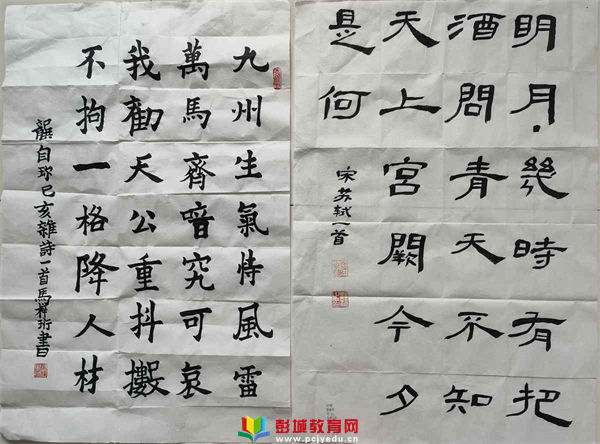 九州生氣恃風雷
萬馬齊喑究可哀
我勸天公重抖擻
不拘一格降人材
龔自珍己亥雜詩一首馬書
明月幾時有把
酒問青天不知
天上宮闕今夕
是何
宋苏轼一首
彭城教育网
www.pcjyedu.com